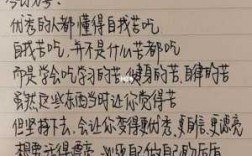 优秀的人都懂得自我苦吃
自我苦吃,并不是什么苦都吃
而是学会吃学习的苦,健身的苦,自律的苦
虽然这些东西当时让你觉得苦
但坚持下去,会让你变得更优秀,更自信,更漂亮
想要活得漂亮